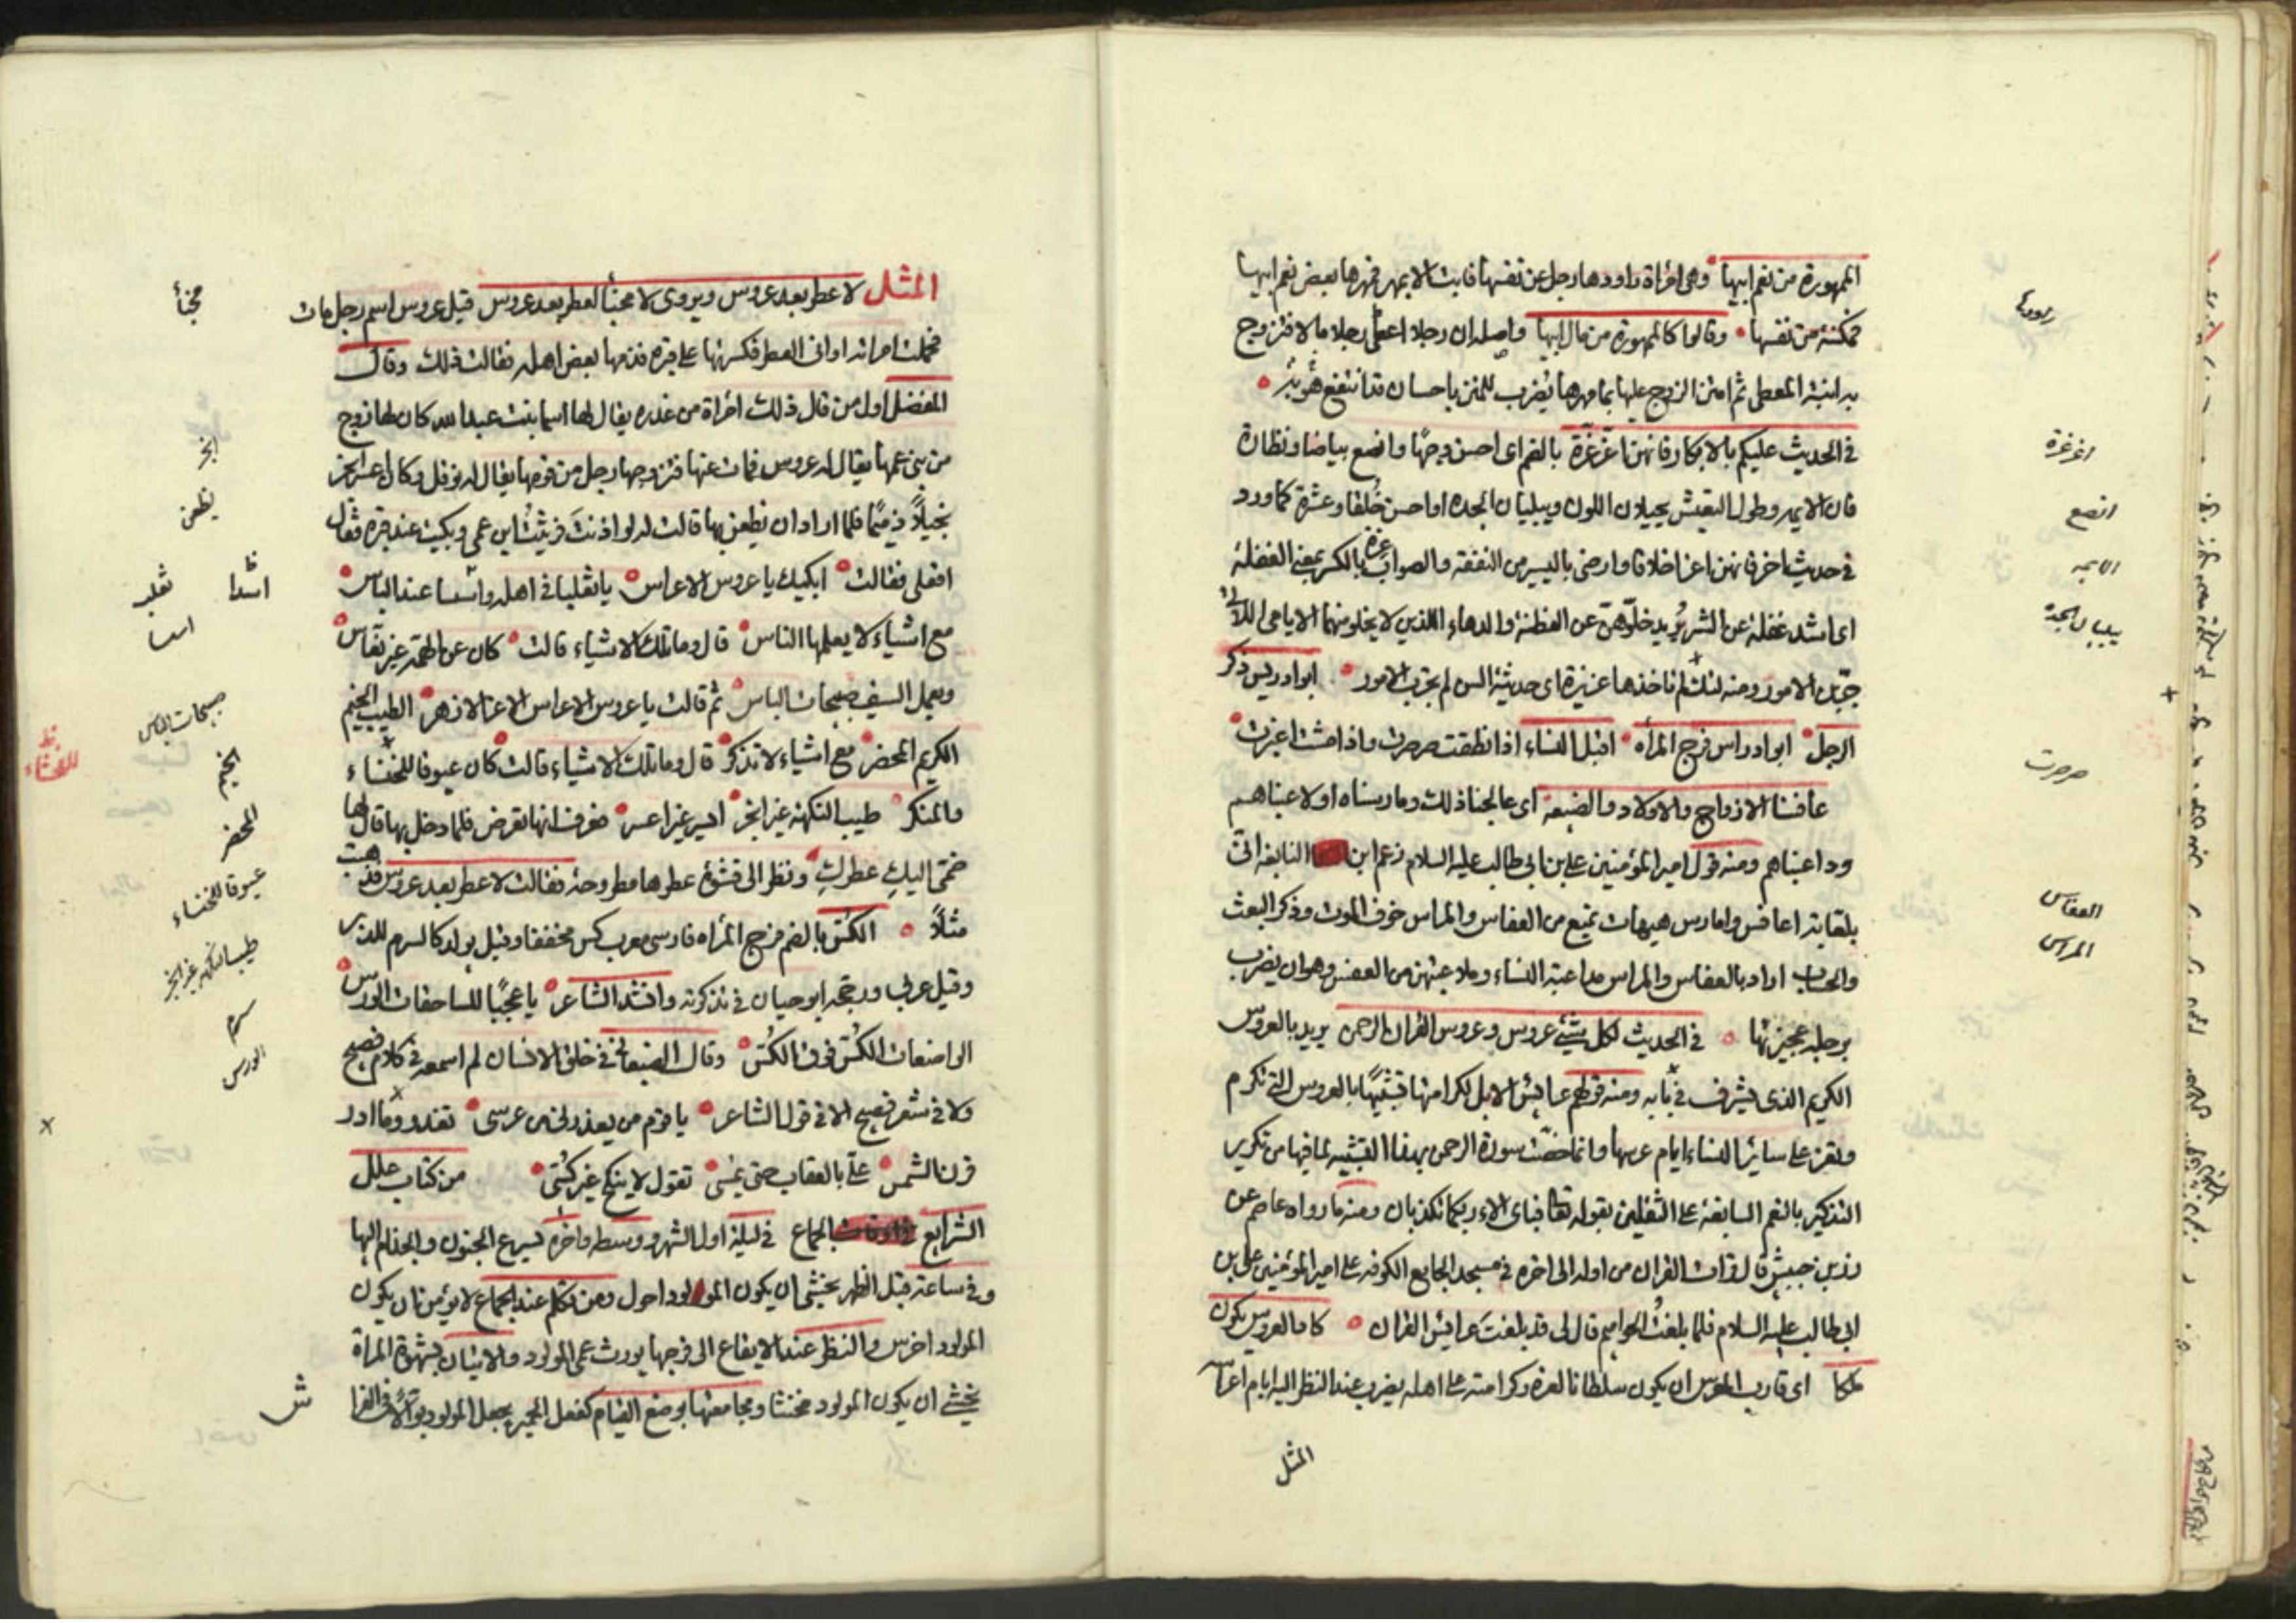 الممهورة من نعم ابيها وهى امرأة راودها رجل عن نفسها فابت الا بمهر فمهرها بعض نعم ابيها
فمكنته من نفسها وقالوا كالممهورة من مال ابيها واصله ان رجلا اعطى رجلا مالا فتزوج
به ابنة المعطى ثم امتن الزوج عليها بما مهرها يضرب للمتن باحسان قد انتفع هو به
فى الحديث عليكم بالابكار فانهن اغر غرة بالضم اى احسن وجها وانصع بياضا ونظارة
فان الايمه وطول التعيش يحيلان اللون ويبليان الجدة او احسن خلقا وعشرة كما ورد
فى حديث اخر فانهن اغر اخلاقا وارضى باليسير من النفقة والصواب غرة بالكسر بمعنى الغفلة
اى اشد غفلة عن الشر يريد خلوهن عن الفطنة والدهاء اللذين لا يخلو منهما الايامى اللاتى
جربن الامور ومنه لنك لم تأخذها غريرة اى حديثة السن لم تجرب الامور ابو ادريس ذكر
الرجل ابو ادراس فرج المرأه اقبل النساء اذا نطقت صرصرت واذا مشت
عافسنا الازواج والاولاد والضيعه اى عالجنا ذلك ومارسناه او لاعبناهم
وداعبناهم ومنه قول امير المؤمنين على بن ابى طالب عليه السلام زعم ابن النابغه انى
تلعابة اعافس وامارس هيهات يمنع من العفاس والمراس خوف الموت وذكر البعث
والحساب اراد بالعفاس والمراس مداعبة النساء وملاعبتهن من العفس وهو ان يضرب
برجله عجيزتها فى الحديث لكل شيئ عروس وعروس القران الرحمن يريد بالعروس
الكريم الذى يشرف فى بابه ومنه قولهم عرايس الابل لكرامتها تشبيها بالعروس التى تكرم
وتعز على سائر النساء ايام عرسها وانما خصت سورة الرحمن بهذا التشبيه لما فيها من تكرير
التذكير بالنعم السابغة على الثقلين بقوله تعالى فباى الاء ربكما تكذبان ومنه ما رواه عاصم عن
زر بن حبيش قال قرات القران من اوله الى اخره فى مسجد الجامع الكوفه على امير المؤمنين على بن
ابى طالب عليه السلام فلما بلغت الحواميم قال لى قد بلغت عرايس القران كاد العروس يكون
ملكا اى قارب العروس ان يكون سلطانا لعزه وكرامته على اهله يضرب عند النظر اليه ايام اعراسه
المثل
اغر غرة
انصع
الايمه
يبليان الجدة
صرصرت
العفاس
المراس
المثل لا عطر بعد عروس ويروى لا مخبأ لعطر بعد عروس قيل عروس اسم رجل مات
فحملت امراته اوانى العطر فكسرتها على قبره فذمها بعض اهله فقالت ذلك وقال
المفضل اول من قال ذلك امراة من عذره يقال لها اسما بنت عبد الله كان لها زوج
من بنى عمها يقال له عروس فمات عنها فتزوجها رجل من قومها يقال له نوفل وكان اعسر ابخر
بخيلا ذميما فلما اراد ان يظعن بها قالت له لو اذنت فرثيت ابن عمى وبكيت عند قبره فقال
افعلى فقالت ابكيك يا عروس الاعراس يا ثعلبا فى اهله واسدا عند الباس
مع اشياء لا يعلمها الناس قال وما تلك الاشياء قالت كان عن الهمة غير نعاس
ويعمل السيف صبيحات الباس ثم قالت يا عروس الاعراس الاغر الازهر الطيب الخيم
الكريم المحضر مع اشياء لا تذكر قال وما تلك الاشياء قالت كان عيوفا للخنناء
والمنكر طيب النكهة غير ابخر ايسر غير اعسر فعرف انها تعرض فلما دخل بها قال لها
ضمى اليك عطرك ونظر الى قشوة عطرها مطروحة فقالت لا عطر بعد عروس فذهبت
مثلا الكس بالضم فرج المرأه فارسى معرب كس مخففا وقيل مولد كالسرم للدبر
وقيل عربى ورجحه ابو حيان فى تذكرته وانشد الشاعر يا عجبا للساحقات الورس
الواضعات الكس فوق الكس وقال الصنعانى فى خلق الانسان لم اسمعه فى كلام فصيح
ولا فى شعر فصيح الا فى قول الشاعر يا قوم من يعذرنى من عرسى تغدو وما اذر
قرن الشمس على بالعقاب حتى تمسى تقول لا ينكح غير كسى من كتاب علل
الشرايع فى اوقات الجماع فى ليلة اول الشهر ووسطه واخره يسرع الجنون والجذام اليها
وفى ساعة قبل الظهر يخشى ان يكون المولود احول ومن تكلم عند الجماع لا يؤمن ان يكون
المولود اخرس والنظر عند الايقاع الى فرجها يورث عمى المولود والاتيان بشهوة المراة
يخشى ان يكون المولود مخنثا ومجامعتها بوضع القيام كفعل الحمير يجعل المولود بوالا فى الفرا
مخبأ
ابخر
يظعن
اسدا
ثعلب
صبيحات الباس
الخيم
المحضر
عيوفا للخنناء
طيب النكهة غير ابخر
سرم
الورس
ش